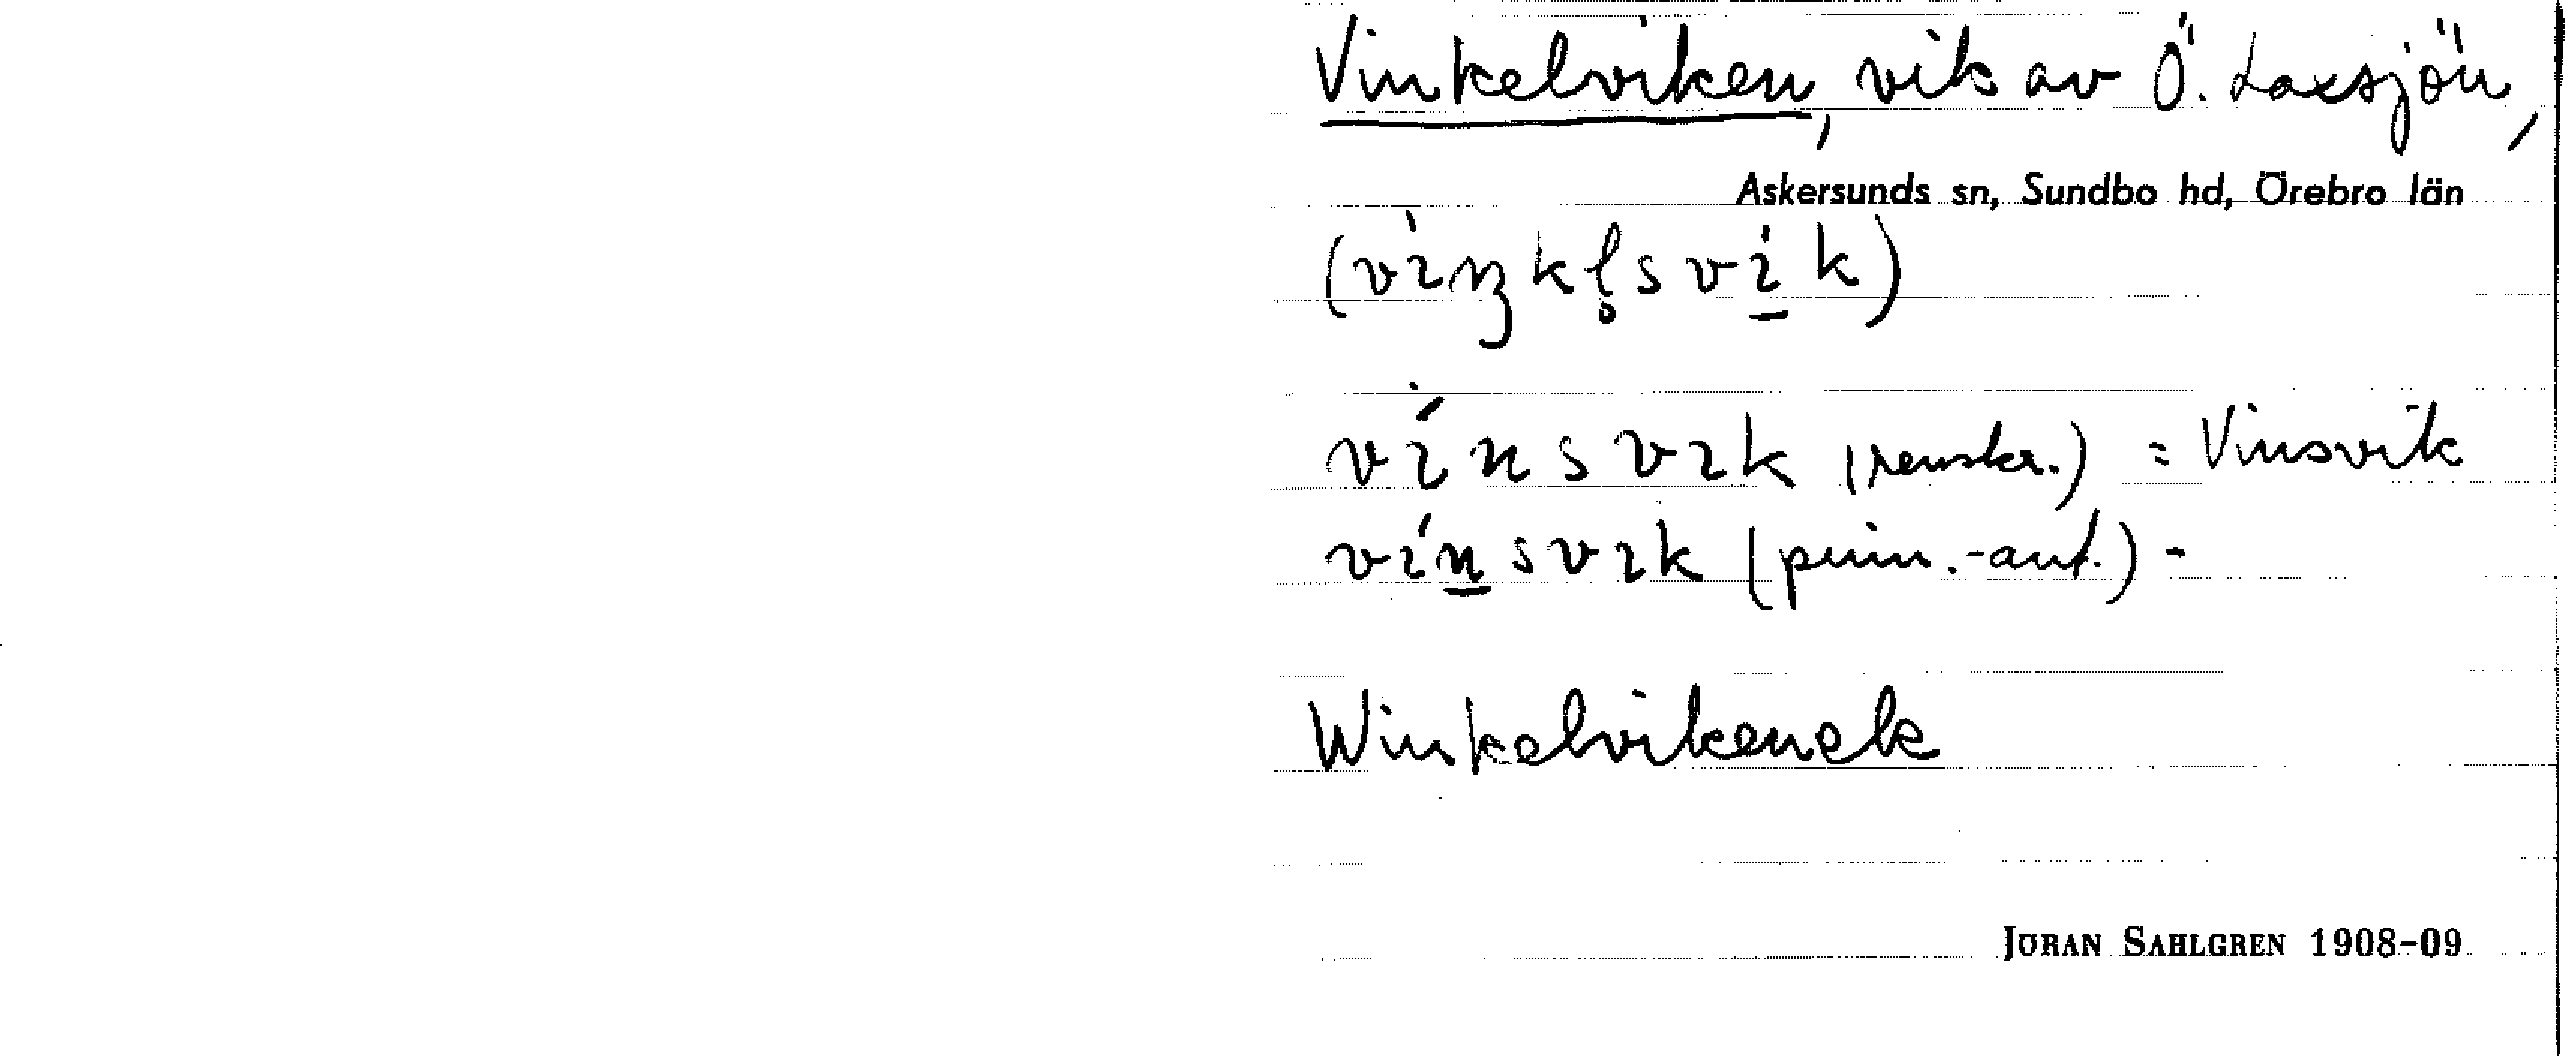 Vinkelviken, vik av Ö. Laxsjön,
Askersunds sn, Sundbo hd, Örebro län
(vìŋkl̥svi̱k)
vínsvik (renskr.) = Vinsvik
víṉsvik (prim.-ant.) -
Winkelvikenek
JÖRAN SAHLGREN 1908-09